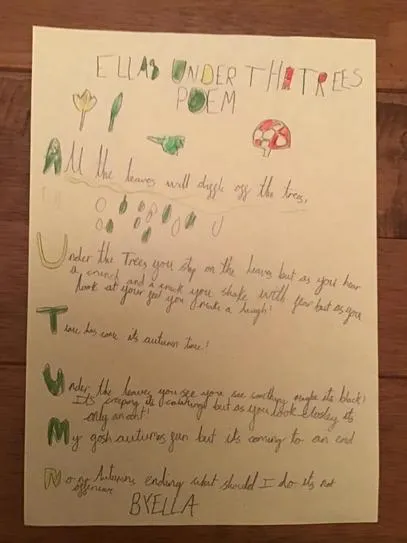 ELLAS UNDER THE TREES
POEM
All the leaves will diggle off the trees,
Under the Trees you step on the leaves but as you hear
a crunch and a crack you shake with fear but as you
look at your feet you make a laugh!
Time has come its autumn time!
Under the leaves you see you see something maybe its black!
Its creeping its but as you look closley its
only an ant!
My gosh autumns fun but its coming to an end
No no Autumns ending what should I do its not
BYELLA